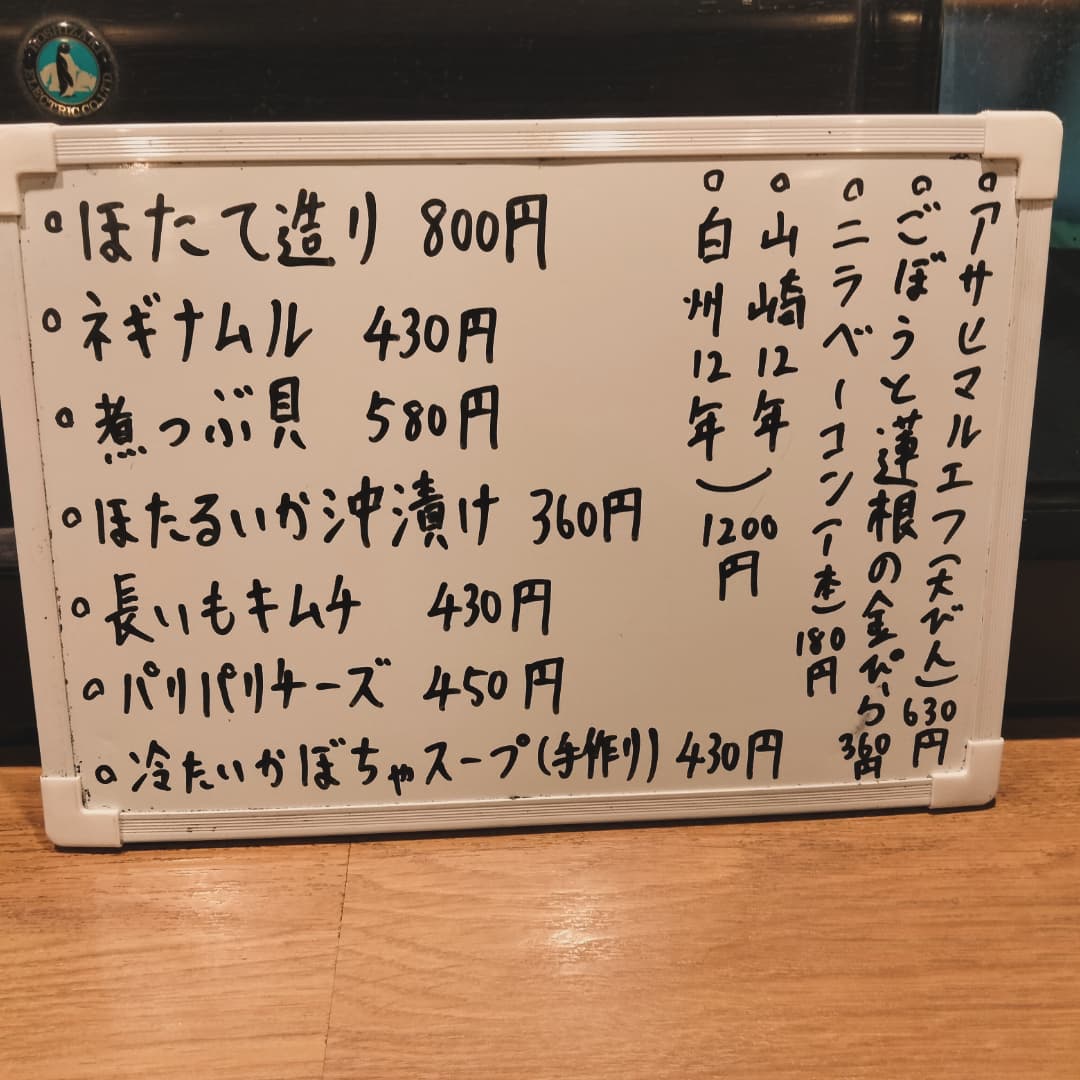 HOSHIZAKI
ELECTRIC CO.,LTD.
ほたて造り 800円
ネギナムル 430円
煮つぶ貝 580円
ほたるいか沖漬け 360円
長いもキムチ 430円
パリパリチーズ 450円
冷たいかぼちゃスープ(手作り) 430円
アサヒマルエフ(大びん)630円
ごぼうと蓮根の金ぴら360円
ニラベーコン(一本)180円
山崎12年
白州12年)1200円